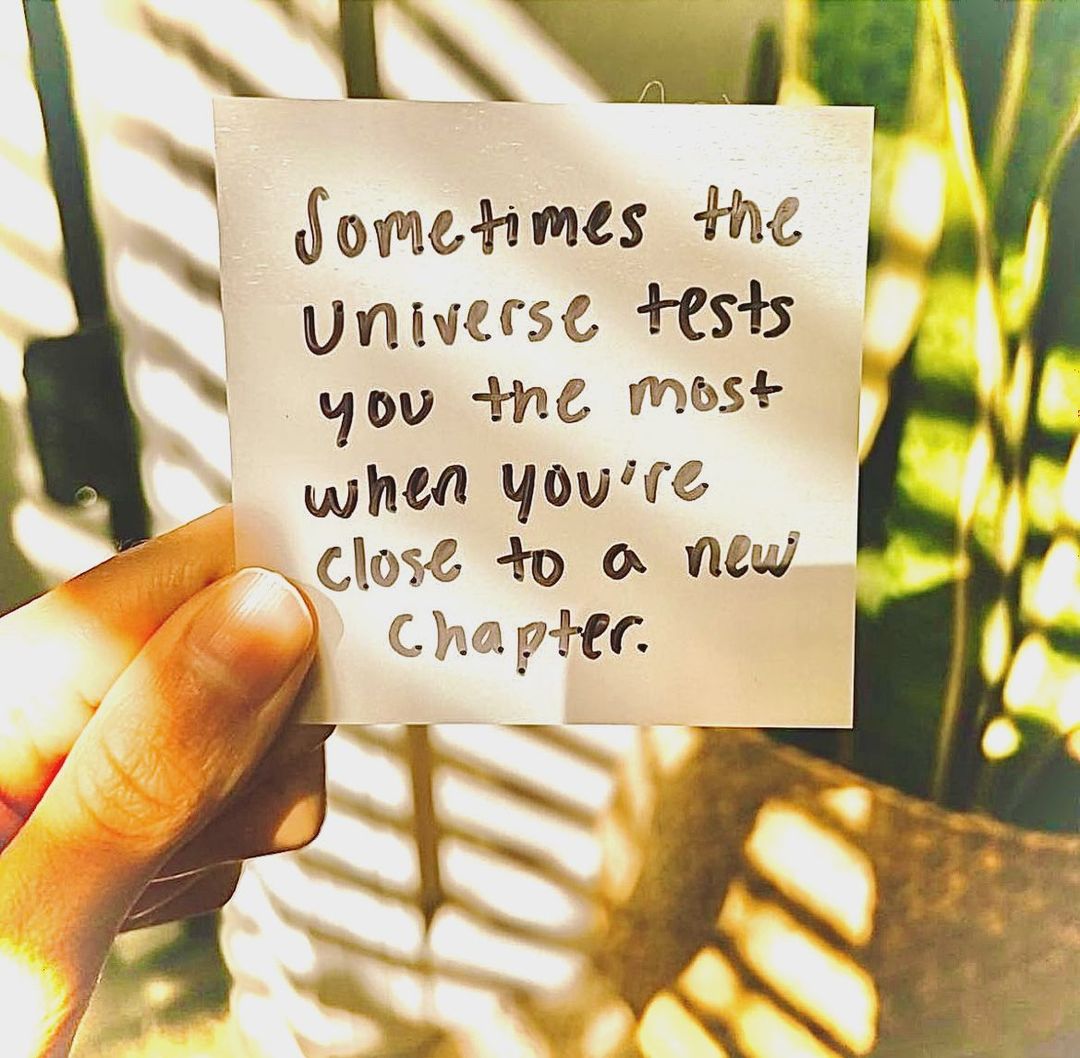 Sometimes the
Universe tests
you the most
when you're
close to a new
chapter.